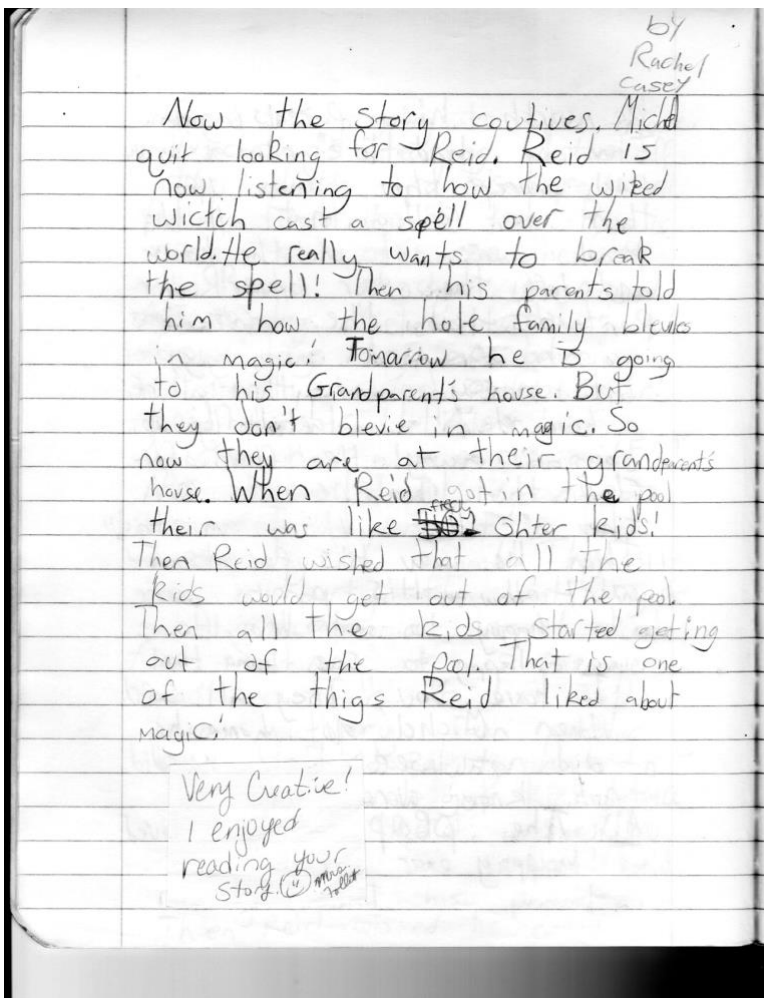 by
Rachel
Casey
Now the story coutives. Michel
quit looking for Reid. Reid is
now listening to how the wiked
wictch cast a spell over the
world. He really wants to break
the spell! Then his parents told
him how the hole family blevies
in magic! Tomarrow he is going
to his Grandparent's house. But
they don't blevie in magic. So
now they are at their grandperent's
house. When Reid got in the pool
their was like fifety Ohter kids!
Then Reid wished that all the
kids would get out of the pool.
Then all the kids started geting
out of the pool. That is one
of the thigs Reid liked about
magic!
Very Creative!
I enjoyed
reading your
story! Mrs.
Follett